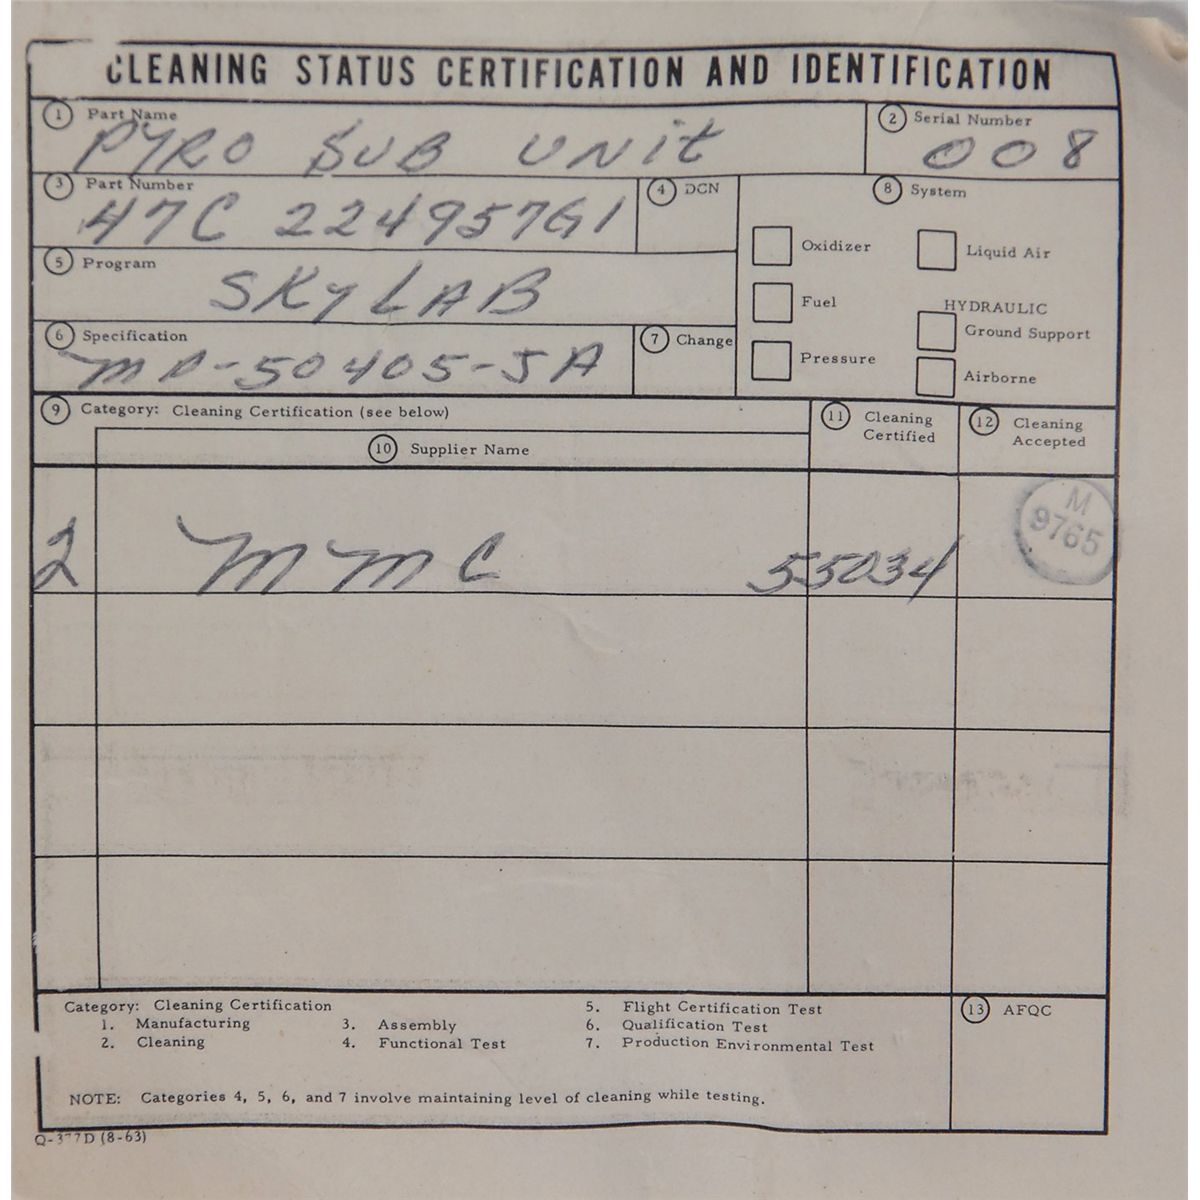 CLEANING STATUS CERTIFICATION AND IDENTIFICATION
1 Part Name
PYRO SUB UNIT
2 Serial Number
008
3 Part Number
47C 224957G1
4 DCN
5 Program
SKYLAB
6 Specification
50405-5A
7 Change
8 System
Oxidizer
Liquid Air
Fuel
HYDRAULIC
Ground Support
Pressure
Airborne
9 Category: Cleaning Certification (see below)
10 Supplier Name
11 Cleaning
Certified
12 Cleaning
Accepted
2 MMC 55034
M
9765
Category: Cleaning Certification
1. Manufacturing
2. Cleaning
3. Assembly
4. Functional Test
5. Flight Certification Test
6. Qualification Test
7. Production Environmental Test
NOTE: Categories 4, 5, 6, and 7 involve maintaining level of cleaning while testing.
13 AFQC
Q-377D (8-63)